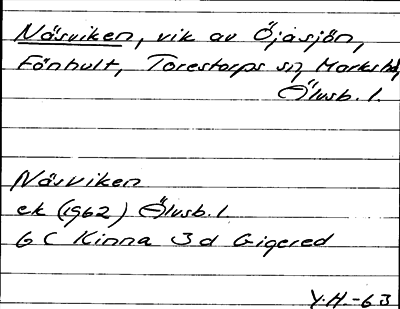 Näsviken, vik av Öjasjön,
Fönhult, Torestorps sn, Marks hd,
Älvsb. l.
Näsviken
ek (1962) Älvsb. l.
6 C Kinna 3d Gigered
Y.H.-63